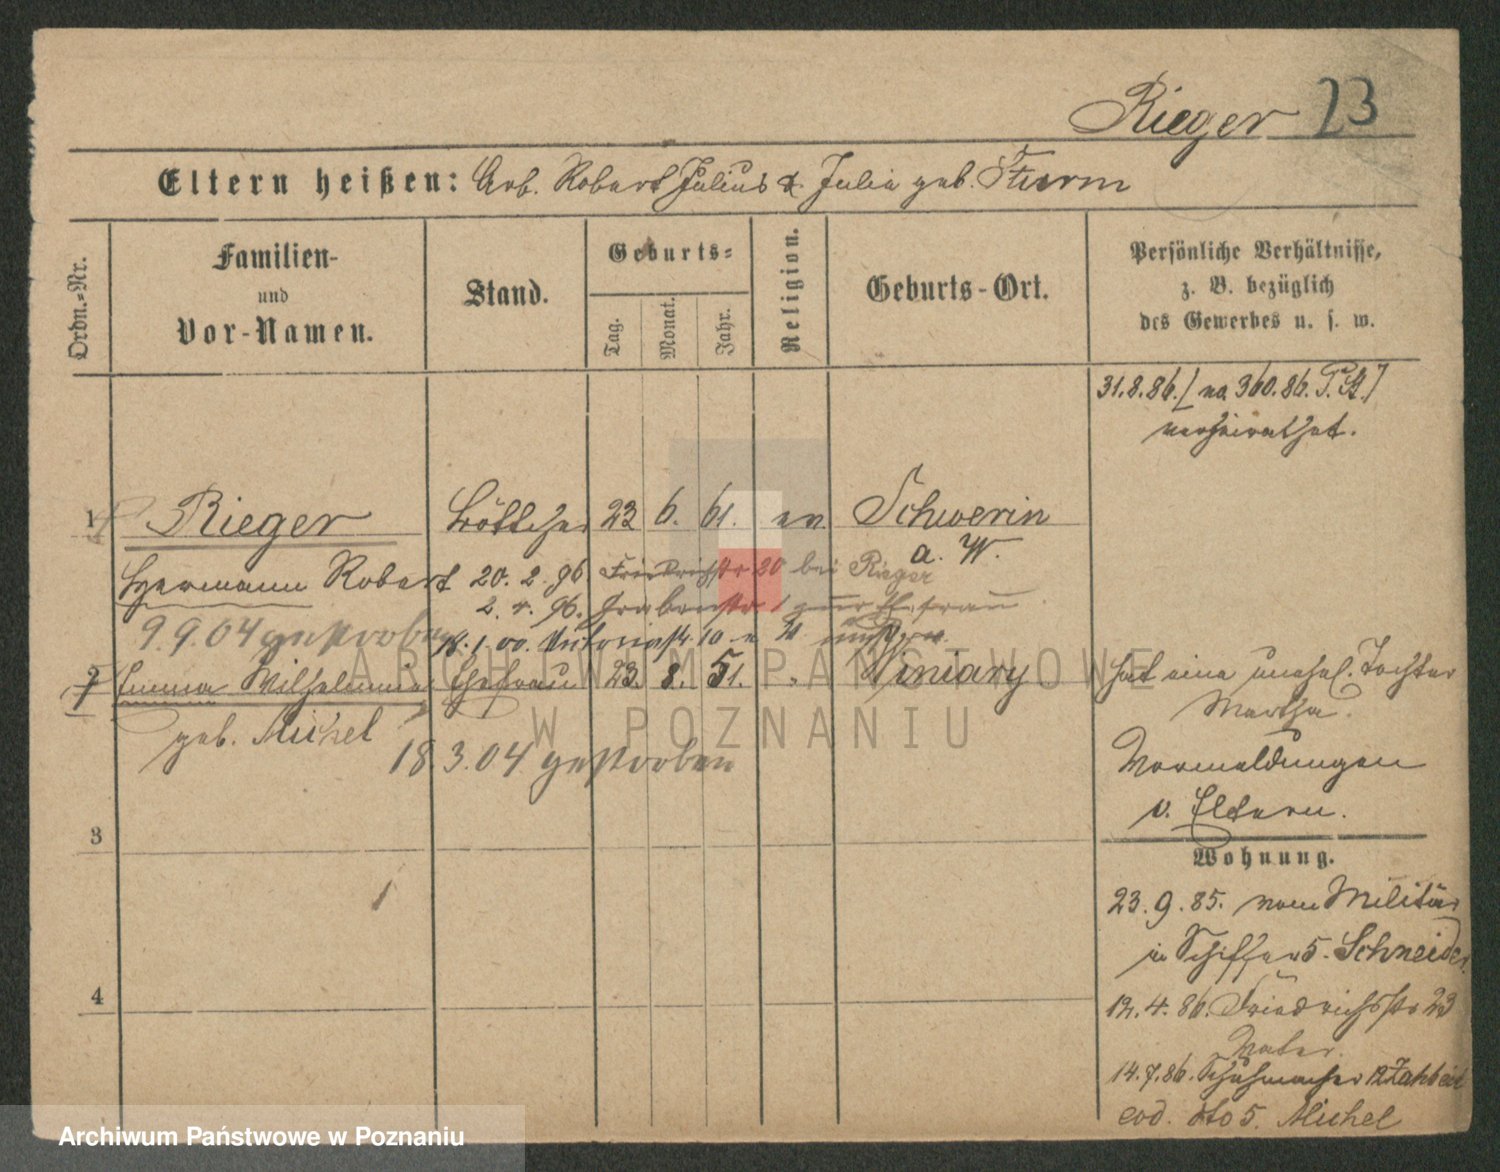 Rieger 23
Eltern heißen: Arb. Robert Julius & Julia geb. Sturm
Ordn.-Nr.
Familien-
und
Vor-Namen.
Stand.
Geburts-
Tag.
Monat.
Jahr.
Religion.
Geburts-Ort.
Persönliche Verhältnisse,
z. B. bezüglich
des Gewerbes u. s. w.
31.8.86. [no 360.86. P. St.]
verheirathet.
1 Rieger Böttcher 23 6. 61. ev. Schwerin
a. W.
Hermann Robert 20. 2. 96 Friedrichstr 20 bei Rieger
2. 4. 96. Grabenstr 1 zur Ehefrau
9.9.04 gestorben 18. 1. 00. Victoriastr. 10
2 Emma Wilhelmine Ehefrau 23. 8. 51. " Winiary
geb. Michel
18.3.04 gestorben
hat eine unehel. Tochter
Martha.
Vormeldungen
v. Eltern.
3
4
Wohnung.
23. 9. 85. vom Militär
in Schiffer 5. Schneider
12. 4. 86. Friedrichsstr 23
Vater.
14.7.86. Schuhmacher 12
eod. dto 5. Michel
ARCHIWUM PAŃSTWOWE
W POZNANIU
Archiwum Państwowe w Poznaniu